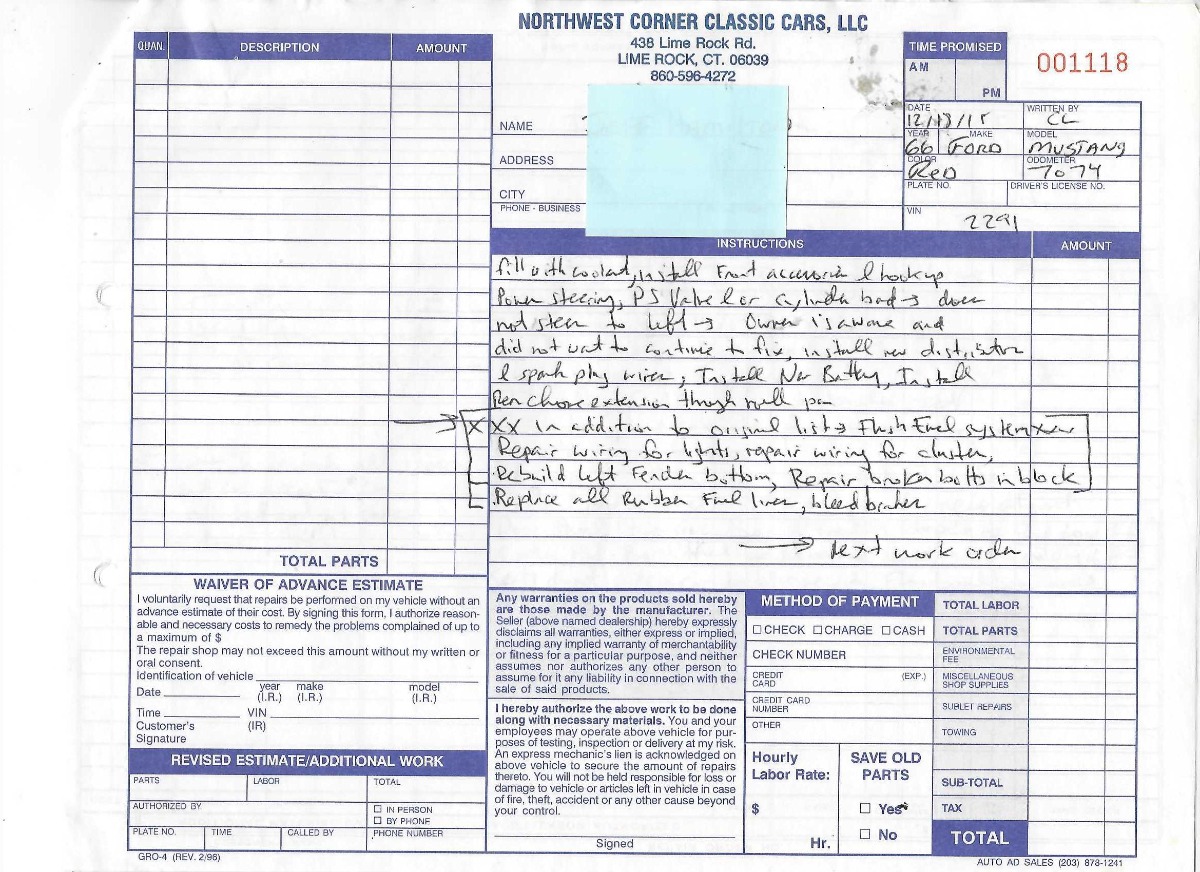 NORTHWEST CORNER CLASSIC CARS, LLC
438 Lime Rock Rd.
LIME ROCK, CT. 06039
860-596-4272
QUAN.
DESCRIPTION
AMOUNT
TIME PROMISED
AM
PM
001118
NAME
ADDRESS
CITY
PHONE - BUSINESS
DATE
12/18/15
WRITTEN BY
CL
YEAR
66
MAKE
FORD
MODEL
MUSTANG
COLOR
Red
ODOMETER
7074
PLATE NO.
DRIVER'S LICENSE NO.
VIN
2291
INSTRUCTIONS
AMOUNT
fill with coolant, install Front accessories & hookup
Power steering, PS Valve & or cylinder bad → does
not steer to left → Owner is aware and
did not want to continue to fix, install new distributor
& spark plug wires, Install New Battery, Install
extension through roll pan
XXX in addition to original list → Flush Fuel system xxx
Repair wiring for lights, repair wiring for cluster,
Rebuild left Fender bottom, Repair broken bolts in block
Replace all Rubber Fuel lines, bleed brakes
→ next work order
TOTAL PARTS
WAIVER OF ADVANCE ESTIMATE
I voluntarily request that repairs be performed on my vehicle without an
advance estimate of their cost. By signing this form, I authorize reason-
able and necessary costs to remedy the problems complained of up to
a maximum of $
The repair shop may not exceed this amount without my written or
oral consent.
Identification of vehicle
Date
year (I.R.)
make (I.R.)
model (I.R.)
Time
VIN (IR)
Customer's
Signature
REVISED ESTIMATE/ADDITIONAL WORK
PARTS
LABOR
TOTAL
AUTHORIZED BY
☐ IN PERSON
☐ BY PHONE
PLATE NO.
TIME
CALLED BY
PHONE NUMBER
GRO-4 (REV. 2/96)
Any warranties on the products sold hereby
are those made by the manufacturer. The
Seller (above named dealership) hereby expressly
disclaims all warranties, either express or implied,
including any implied warranty of merchantability
or fitness for a particular purpose, and neither
assumes nor authorizes any other person to
assume for it any liability in connection with the
sale of said products.
I hereby authorize the above work to be done
along with necessary materials. You and your
employees may operate above vehicle for pur-
poses of testing, inspection or delivery at my risk.
An express mechanic's lien is acknowledged on
above vehicle to secure the amount of repairs
thereto. You will not be held responsible for loss or
damage to vehicle or articles left in vehicle in case
of fire, theft, accident or any other cause beyond
your control.
Signed
METHOD OF PAYMENT
☐ CHECK ☐ CHARGE ☐ CASH
CHECK NUMBER
CREDIT CARD
(EXP.)
CREDIT CARD NUMBER
OTHER
Hourly
Labor Rate:
$
Hr.
SAVE OLD
PARTS
☐ Yes
☐ No
TOTAL LABOR
TOTAL PARTS
ENVIRONMENTAL FEE
MISCELLANEOUS SHOP SUPPLIES
SUBLET REPAIRS
TOWING
SUB-TOTAL
TAX
TOTAL
AUTO AD SALES (203) 878-1241